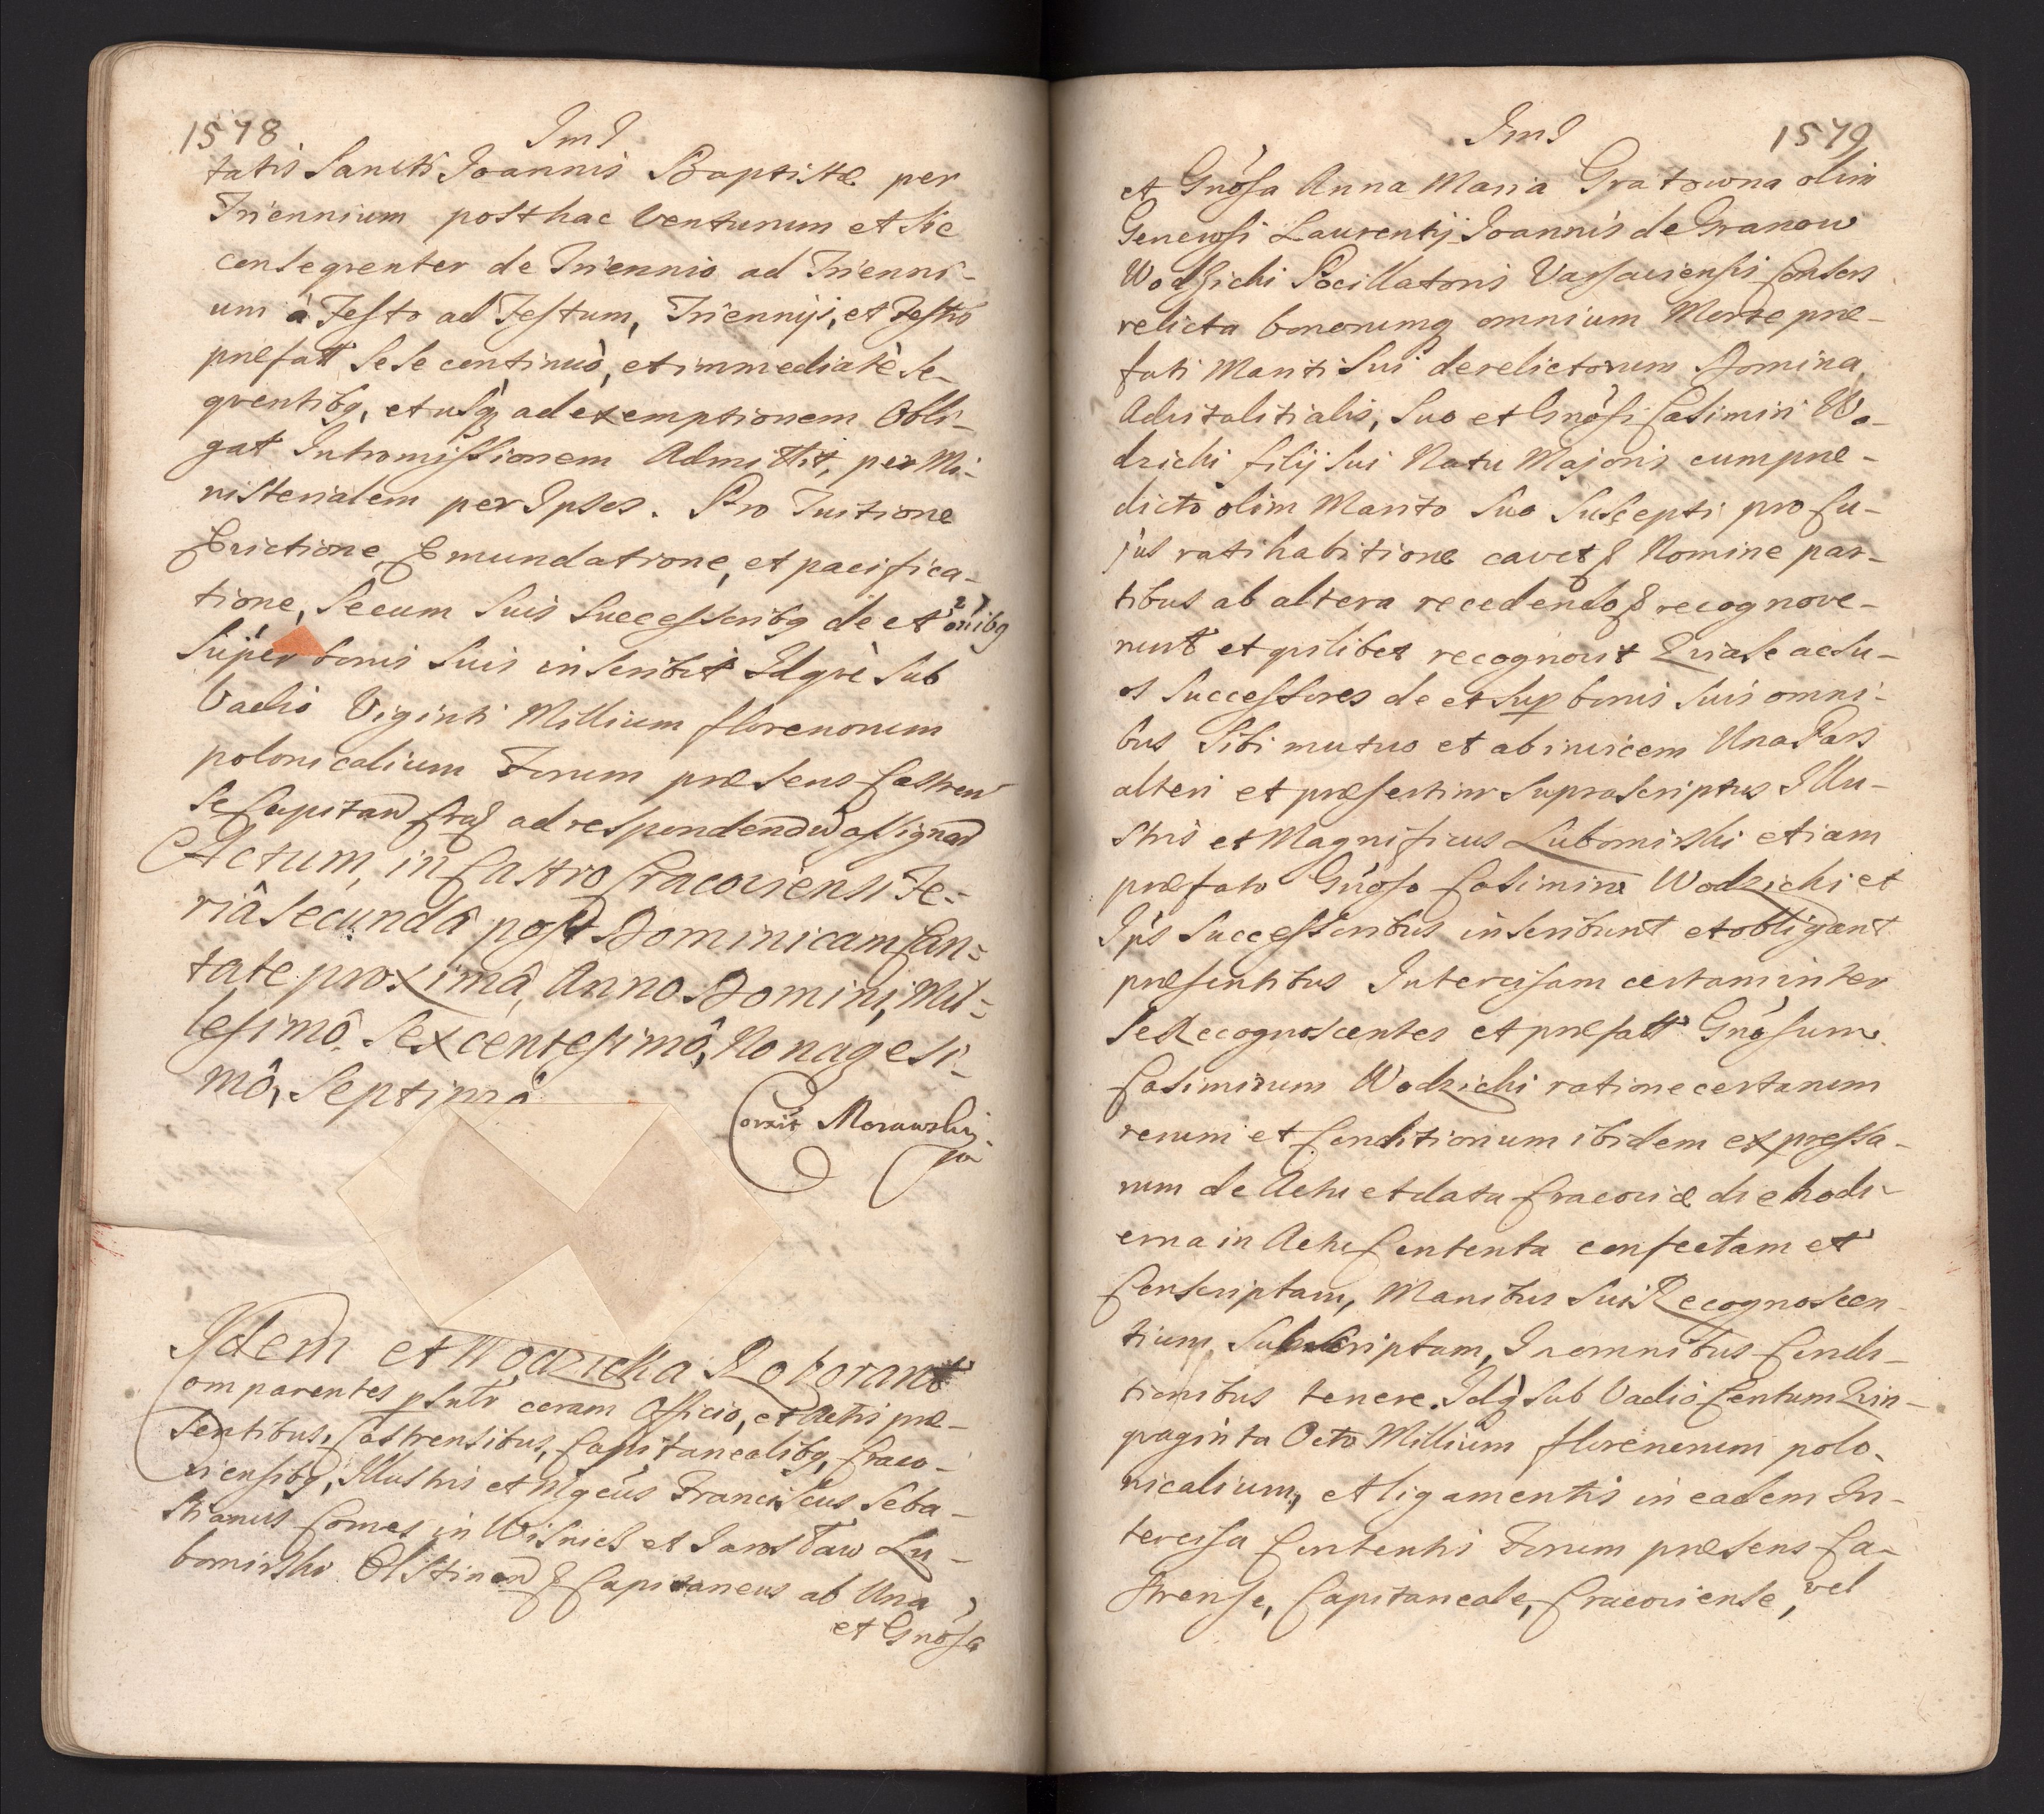 1578
ImI
tatis Sancti Joannis Baptistæ per
Triennium posthac venturum et sic
consequenter de Triennio ad Trienni-
um à Festo ad Festum, Triennijs, et Festis
præfatt sese continuò, et immediatè se-
quentibq, et usq ad exemptionem Obli-
gat Intromissionem Admittit, per Mi-
nisterialem per Ipsos. Pro Tuitione
Evictione Emundatione, et pacifica-
tione, Secum Suis Successoribq de et onibq
Super bonis Suis inscribit Idquè Sub
Vadio Viginti Millium florenorum
polonicalium Forum præsens Castren
se Capitan Crac ad respondendu assignan
Actum, in Castro Cracoviensi Fe-
riâ Secundâ post Dominicam Can-
tate proximâ, Anno Domini, Mil-
lesimô Sexcentesimô, Nonagesi-
mô, Septimô
Corrxit Morawskij
Idem et Wodzicka Roborant
Comparentes psntr coram Officio, et Actis præ-
sentibus, Castrensibus, Capitanealibq, Craco-
viensibq, Illustris et Mgcus Franciscus Seba-
stianus Comes in Wisnicz et Jarosław Lu-
bomirski Olstinen & Capitaneus ab Una
et Gnosa
ImI
1579
et Gnosa Anna Maria Gratowna olim
Generosi Laurentij Joannis de Granow
Wodzicki Pocillatoris Varsaviensis Consors
relicta bonorumq omnium Morte præ-
fati Mariti Sui derelictorum Domina
Advitalitialis, Suo et Gnosi Casimiri Wo-
dzicki filij Sui Natu Majoris cum præ-
dicto olim Marito Suo Suscepti pro cu-
jus ratihabitione cavet & Nomine par-
tibus ab altera recedendo & recognove-
runt et quilibet recognovit Quia Se ac Su-
os Successores de et Sup bonis Suis omni-
bus Sibi mutuo et ab invicem Una Pars
alteri et præsertim Suprascriptus Illu-
stris et Magnificus Lubomirski etiam
præfato Gnoso Casimiro Wodzicki et
Ips Successoribus inscribunt et obligant
præsentibus Intercisam certam inter
Se Recognoscentes et præfatt Gnosum
Casimirum Wodzicki ratione certarum
rerum et Conditionum ibidem expressa-
rum de Actu et data Cracoviæ die hodi-
erna in Actu Contenta confectam et
Conscriptam, Manibus Suis Recognoscen-
tium Subscriptam, In omnibus Condi-
tionibus tenere. Idq Sub Vadio Centum Quin-
quaginta Octo Millium florenorum polo-
nicalium, et ligamentis in eadem In-
tercisa Contentis Forum præsens Ca-
strense, Capitaneale, Cracoviense, vel